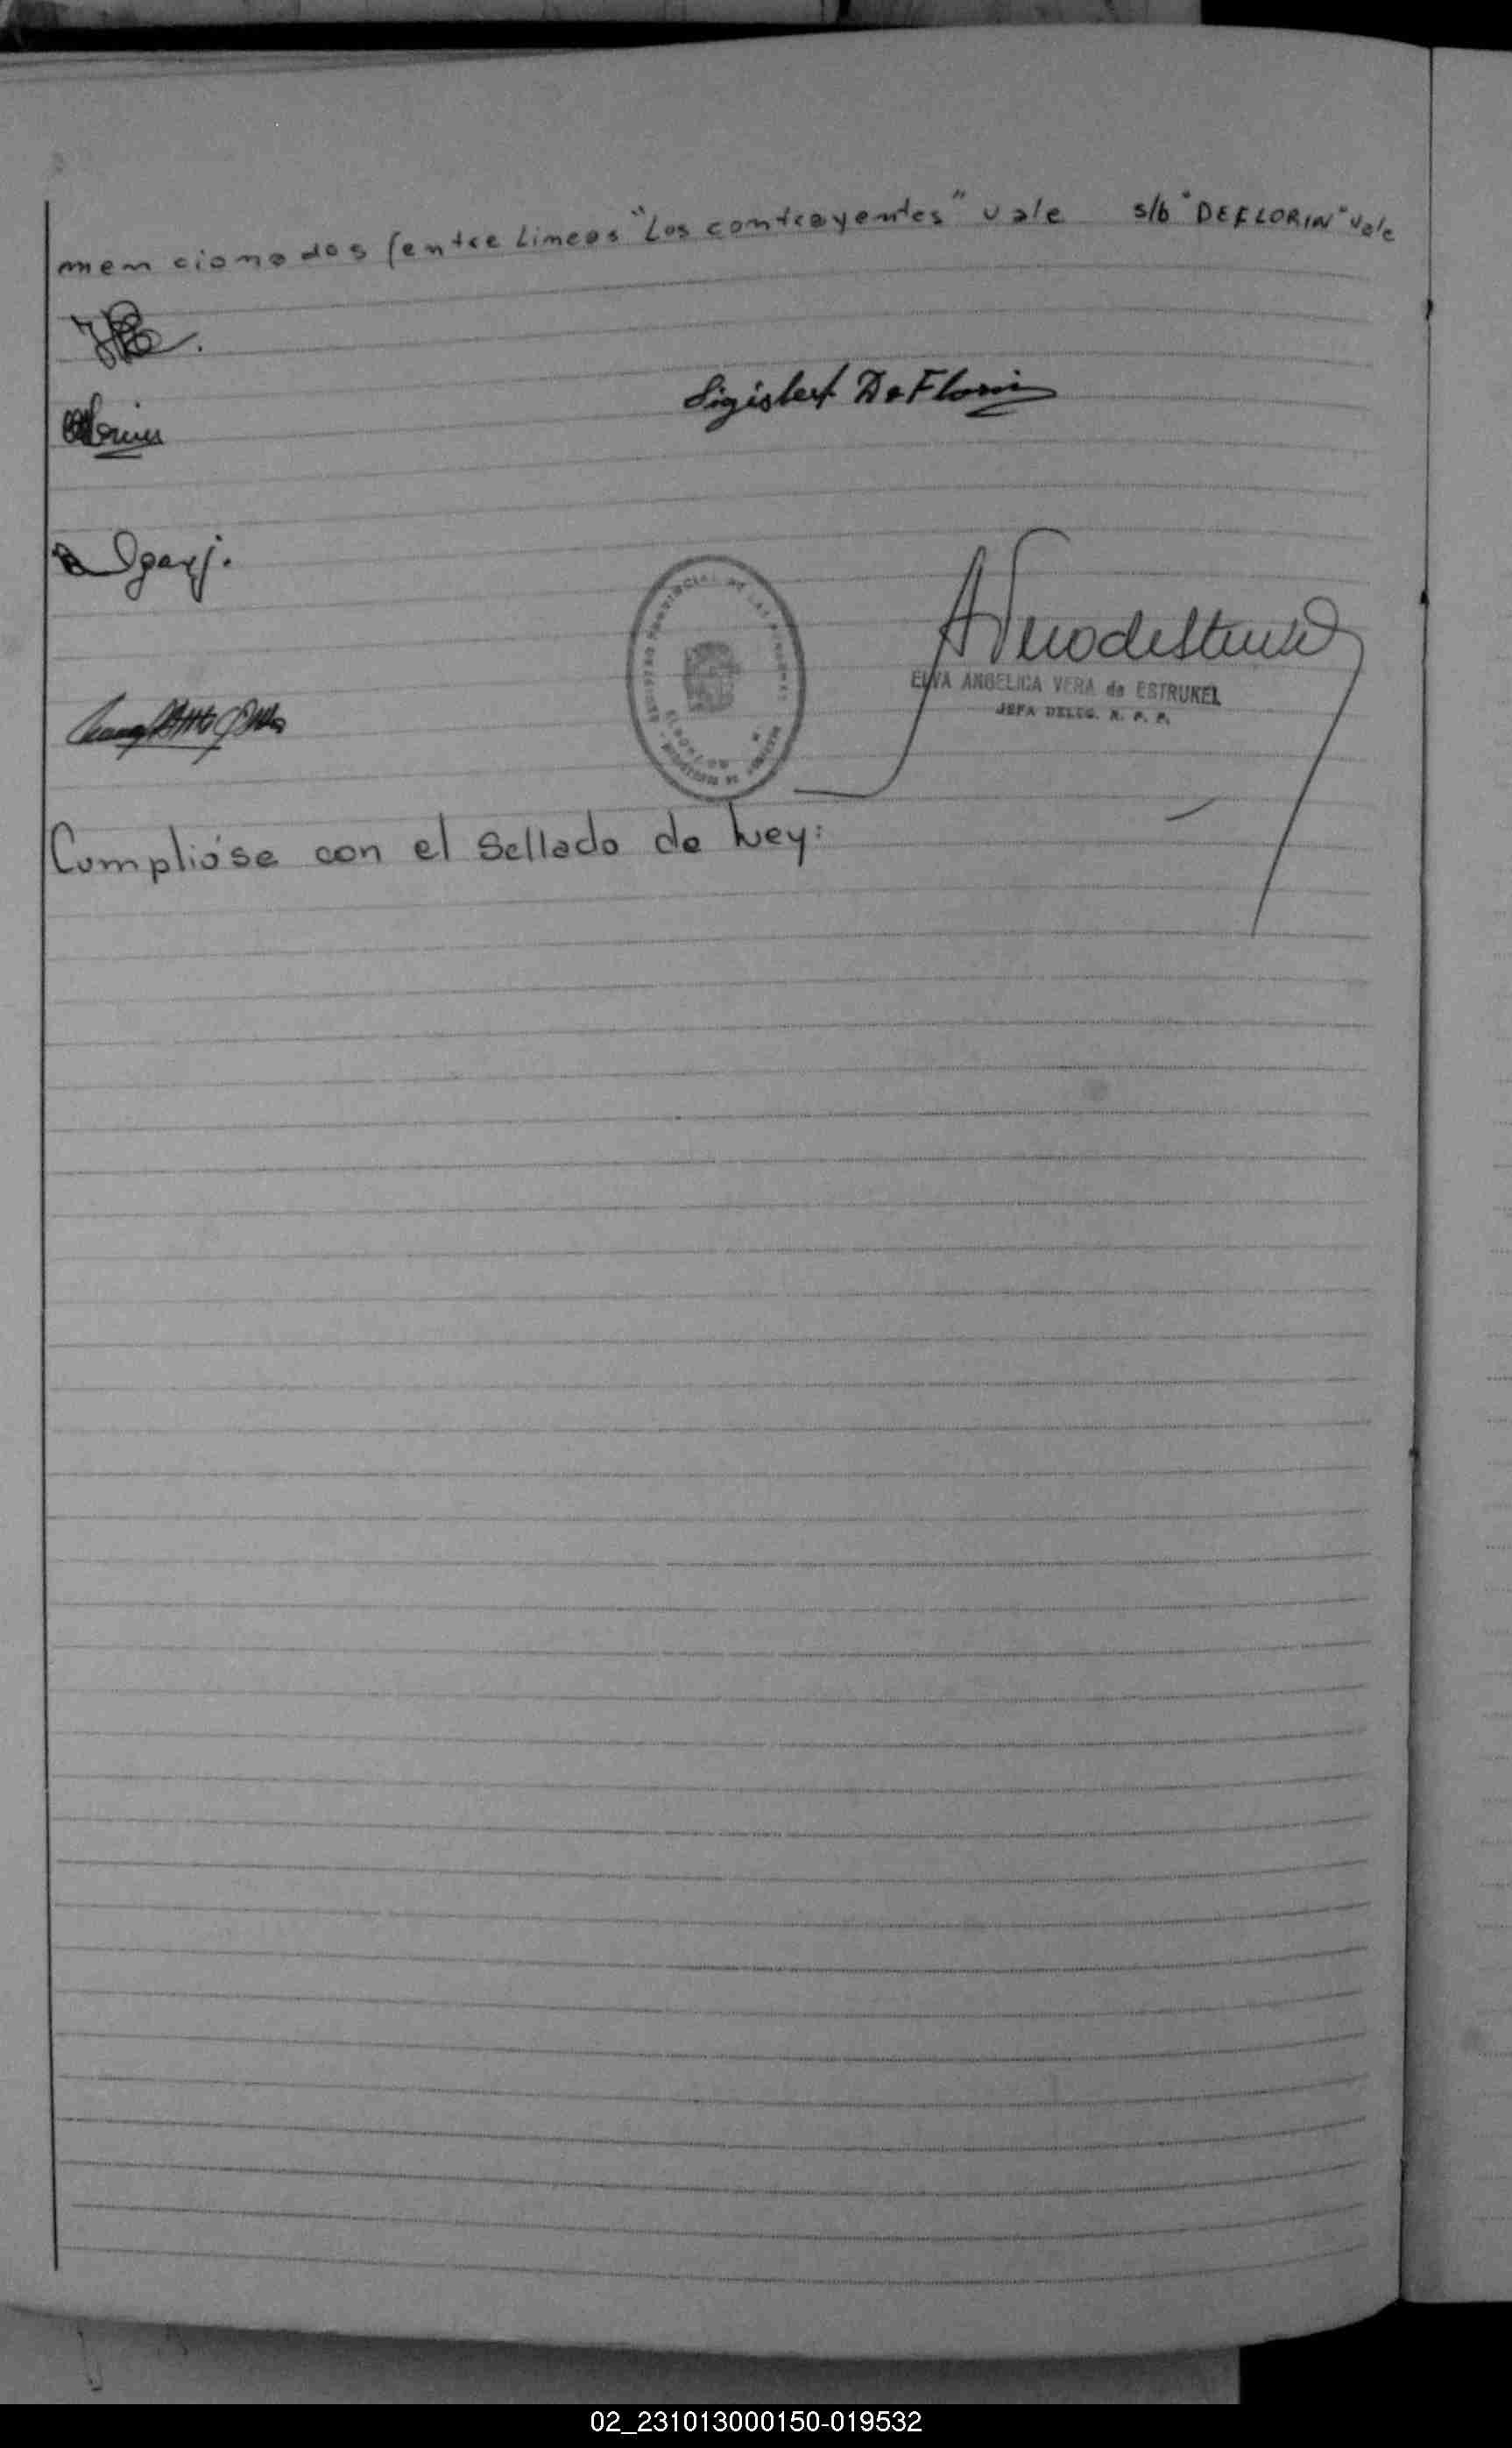 mencionados (entre Lineas "Los contrayentes" vale s/b "DEFLORIN" vale
Sigisbert DeFlorin
REGISTRO PROVINCIAL DE LAS PERSONAS
ELDORADO
ELVA ANGELICA VERA de ESTRUKEL
JEFA DELEG. R. P. P.
Cumplióse con el Sellado de Ley:
02_231013000150-019532